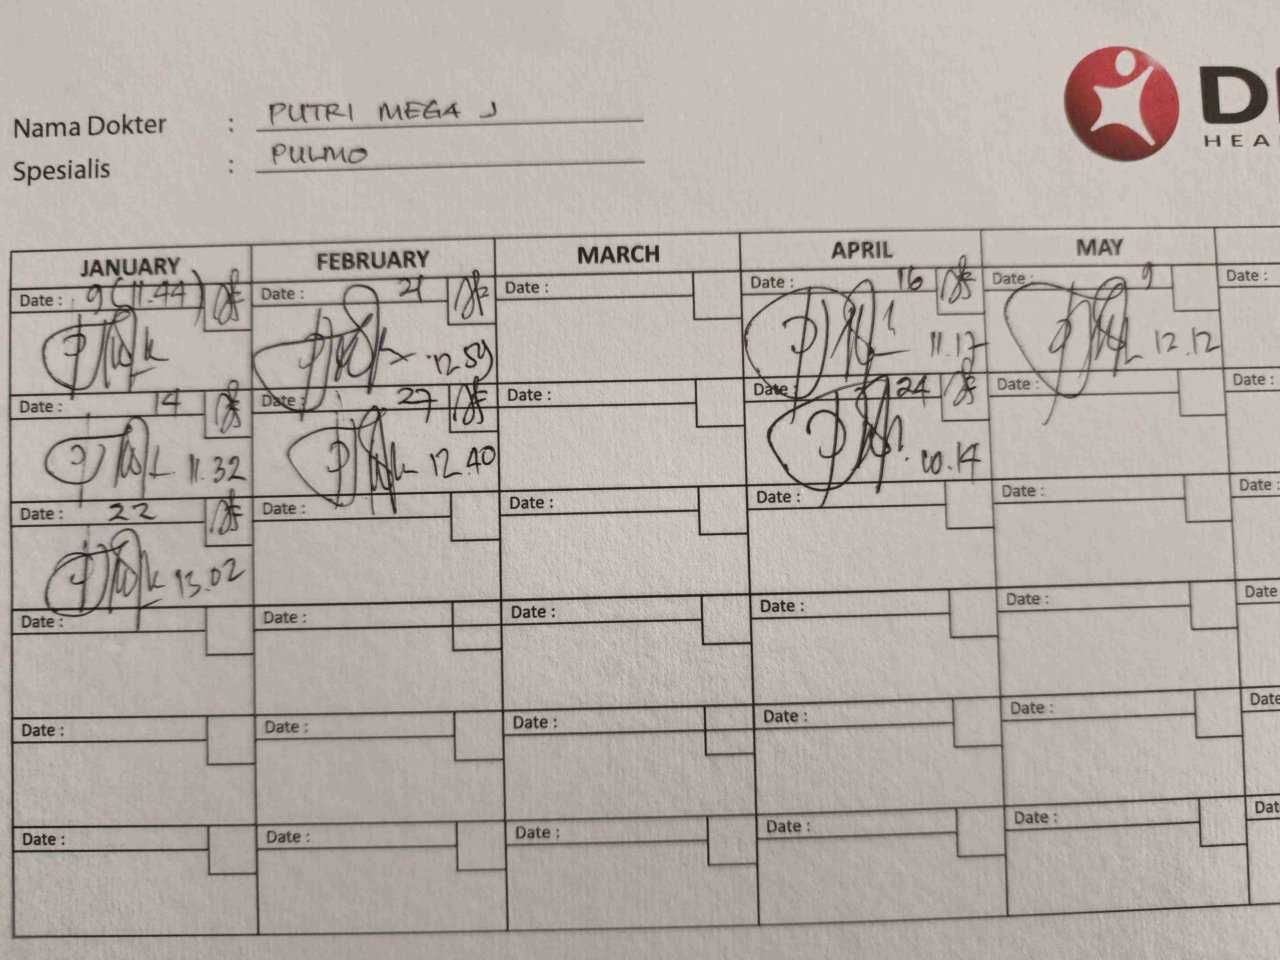 Nama Dokter : PUTRI MEGA J
Spesialis : PULMO
HEA
JANUARY FEBRUARY MARCH APRIL MAY
Date : 9 (11.44) Date : 21 Date : Date : 16 Date : 9 Date :
12.59 11.17 12.12
Date : 14 Date : 27 Date : Date : 24 Date : Date :
11.32 12.40 10.14
Date : 22 Date : Date : Date : Date : Date :
13.02
Date : Date : Date : Date : Date : Date
Date : Date : Date : Date : Date : Date
Date : Date : Date : Date : Date : Dat